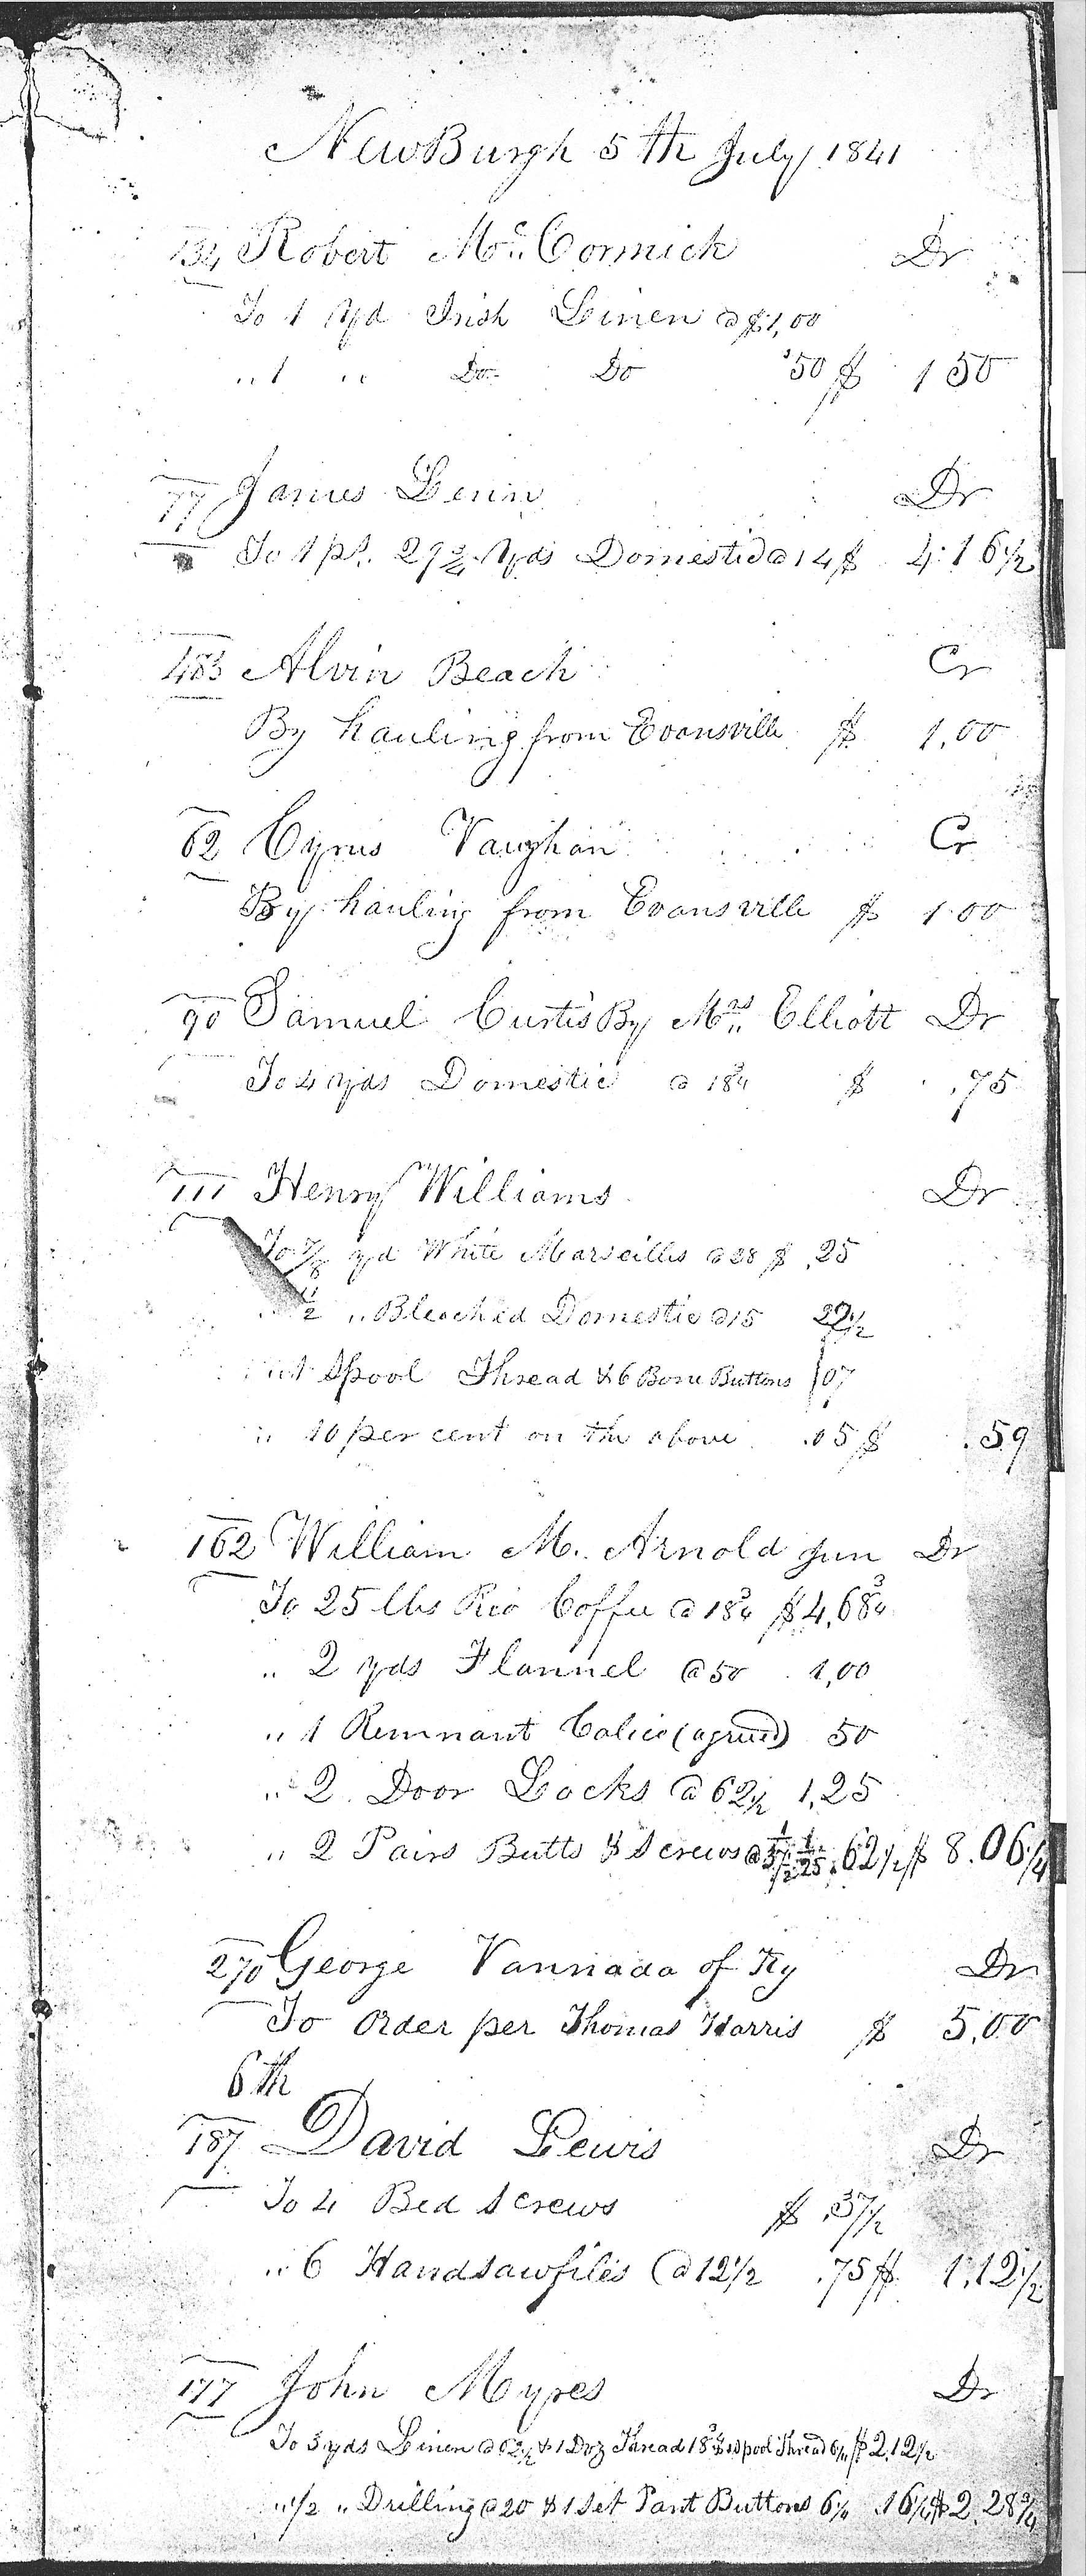 NewBurgh 5th July 1841
134 Robert Mc Cormick Dr
To 1 Yd Irish Linen @ $1,00
" 1 " Do Do 50 $ 1 50
77 James Dr
To 1 ps. 29 3/4 Yds Domestic @ 14 $ 4.16 1/2
483 Alvin Beach Cr
By hauling from Evansville $ 1.00
62 Cyrus Vaughan Cr
By hauling from Evansville $ 1.00
90 Samuel Curtis By Mrs Elliott Dr
To 4 Yds Domestic @ 18 3/4 $ .75
111 Henry Williams Dr
To 7/8 yd White Marseilles @ 28 $ .25
1/2 " Bleached Domestic @ 15 22 1/2
" 1 Spool Thread & 6 Bone Buttons 07
" 10 per cent on the above .05 $ .59
162 William M. Arnold Jun Dr
To 25 lbs Rio Coffee @ 18 3/4 $4,68 3/4
" 2 yds Flannel @ 50 1,00
" 1 Remnant Calico (agreed) 50
" 2 Door Locks @ 62 1/2 1,25
" 2 Pairs Butts & Screws @ .62 1/2 $ 8.06 1/4
270 George Vannada of Ky Dr
To Order per Thomas Harris $ 5.00
6th
187 David Lewis Dr
To 4 Bed Screws $ .37 1/2
" 6 Handsawfiles @ 12 1/2 .75 $ 1.12 1/2
177 John Myres Dr
To 3 yds Linen @ 62 1/2 & 1 Doz Thread 18 3/4 spool Thread 6 1/4 $2.12 1/2
" 1/2 " Drilling @ 20 & 1 Set Pant Buttons 6 1/4 .16 1/4 $2.28 3/4